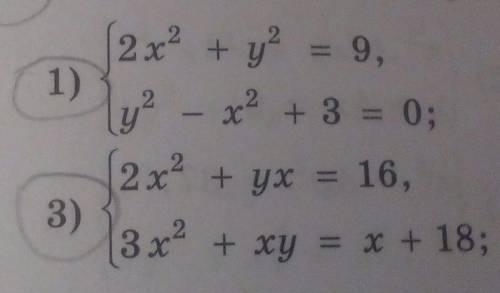 1) { 2x² + y² = 9,
y² − x² + 3 = 0;
3) { 2x² + yx = 16,
3x² + xy = x + 18;